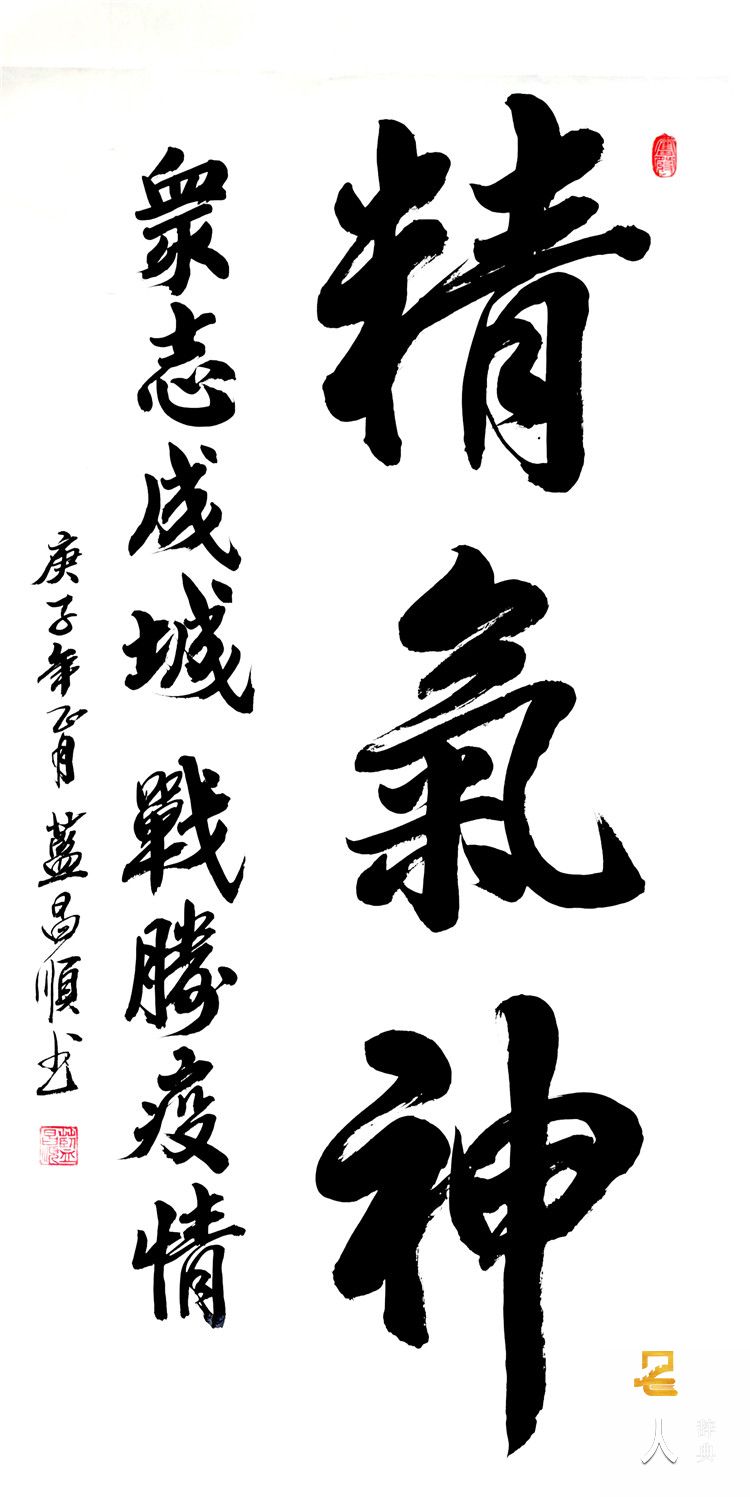 精氣神
衆志成城 戰勝疫情
庚子年正月 藍昌順书
名
人
辞典